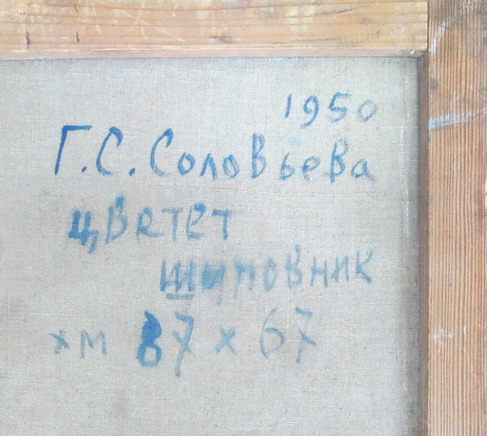 1950
Г.С. Соловьева
цветет
шиповник
хм 87 х 67